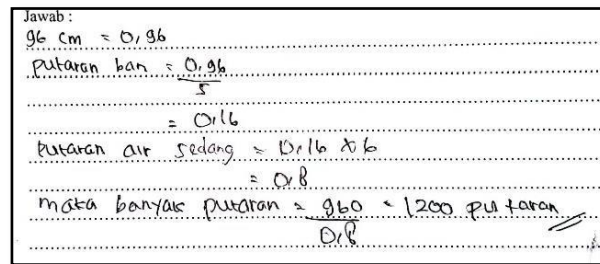 Jawab :
96 cm = 0,96
Putaran ban = 0,96
5
= 0,16
Putaran air sedang = 0,16 x 6
= 0,8
maka banyak putaran = 960 = 1200 putaran
0,8